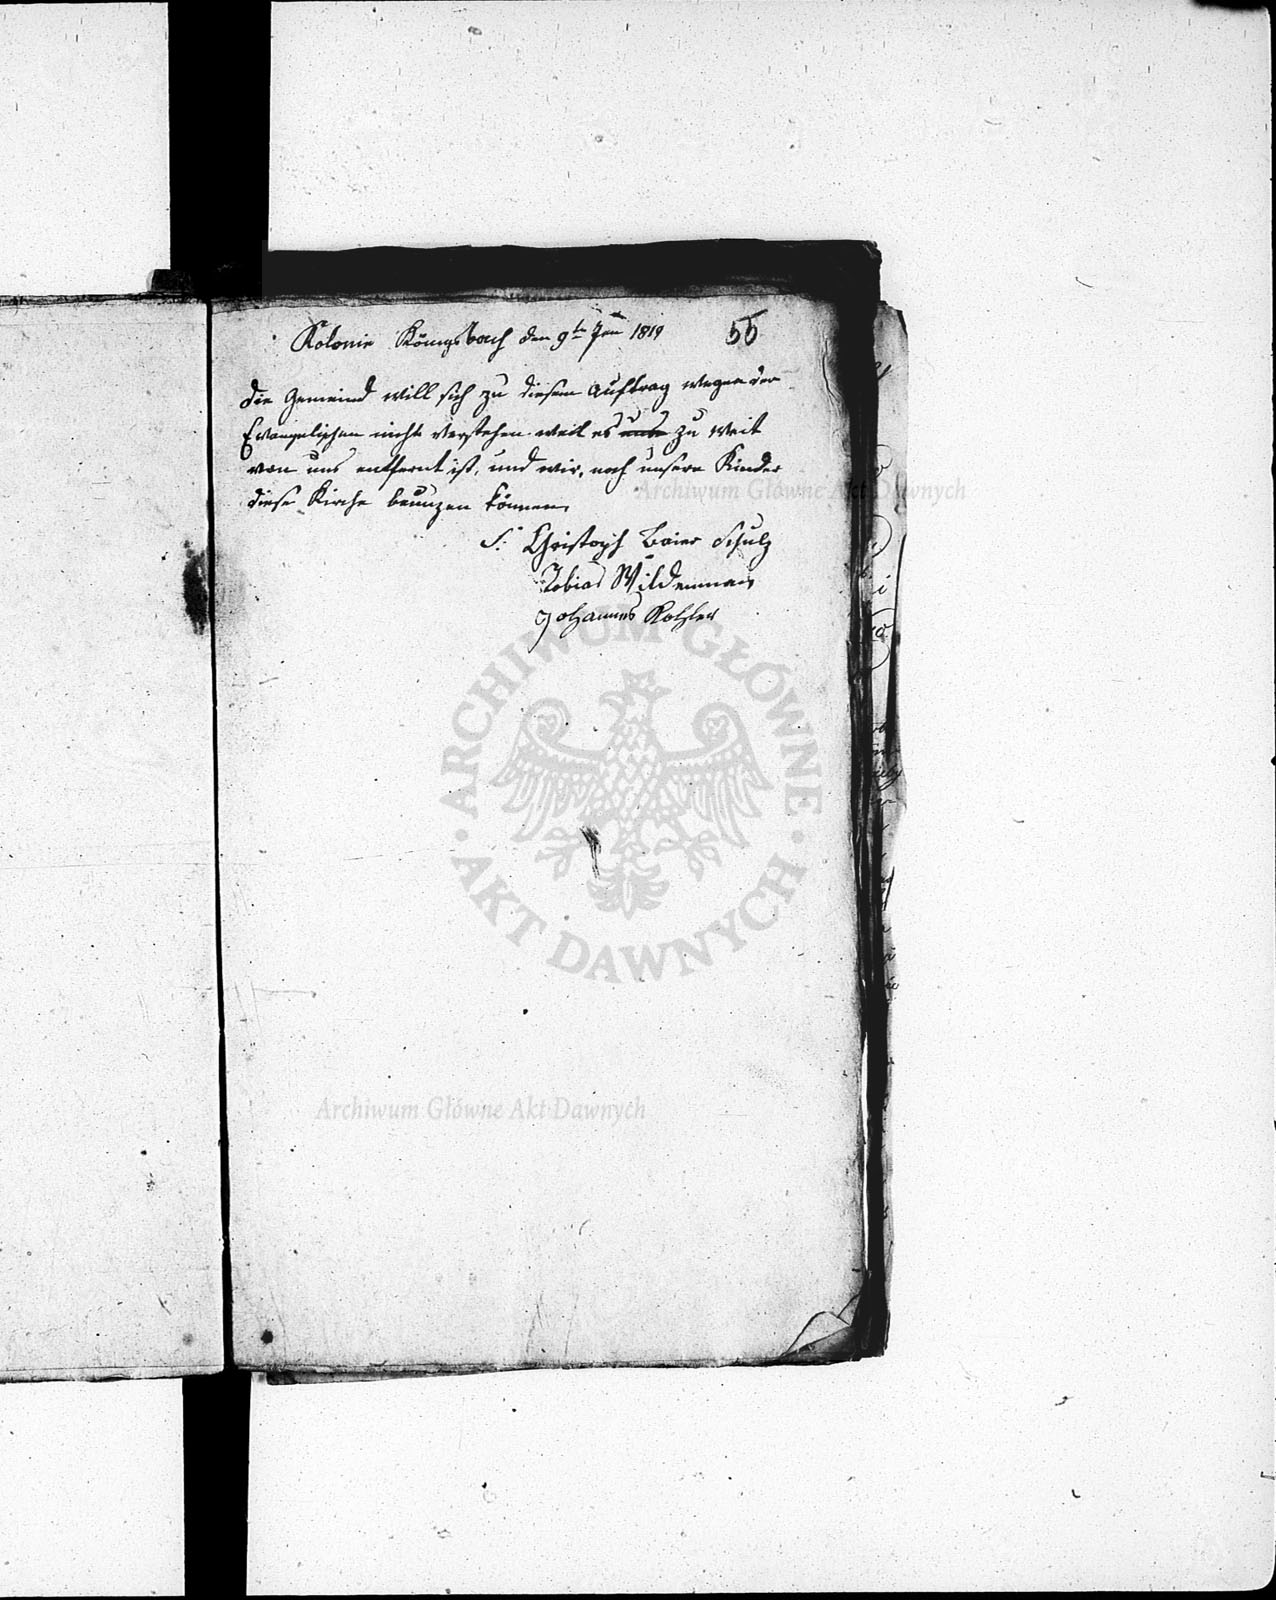 Kolonie Königsbach den 9ten Jan 1819
55
die Gemeind will sich zu diesem Auftrag wegen der
Evangelischen nicht verstehen weil es uns zu weit
von uns entfernt ist, und wir, noch unsere Kinder
diese Kirche beunzen können,
S: Christoph Baier Schulz
Tobias Wildemman
Johannes Kohler
Archiwum Główne Akt Dawnych
ARCHIWUM GŁÓWNE
AKT DAWNYCH
Archiwum Główne Akt Dawnych